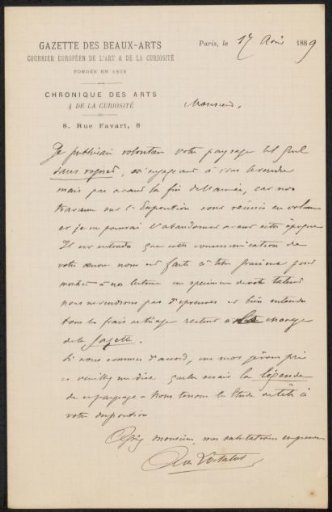 GAZETTE DES BEAUX-ARTS
COURRIER EUROPÉEN DE L'ART & DE LA CURIOSITÉ
FONDÉE EN 1859
CHRONIQUE DES ARTS
& DE LA CURIOSITÉ
8, Rue Favart, 8
Paris, le 17 1889
Monsieur,
Je publierai volontiers votre paysage tel quel
sans
mais pas avant la fin de l'année, car nos
travaux sur l'Exposition sont réunis en volume
et je ne pourrai l'abandonner avant cette époque
Il est entendu que cette communication de
votre nous est faite à titre gracieux pour
montrer à nos lecteurs un spécimen de votre talent
nous ne vendrons pas d'épreuves et bien entendu
tous les frais de tirage restent à la charge
de la Gazette.
Si nous sommes d'accord, je vous prie
de veuillez me dire quelle serait la légende
de ce paysage. Nous tenons l'étude à
votre disposition
monsieur, mes salutations empressées